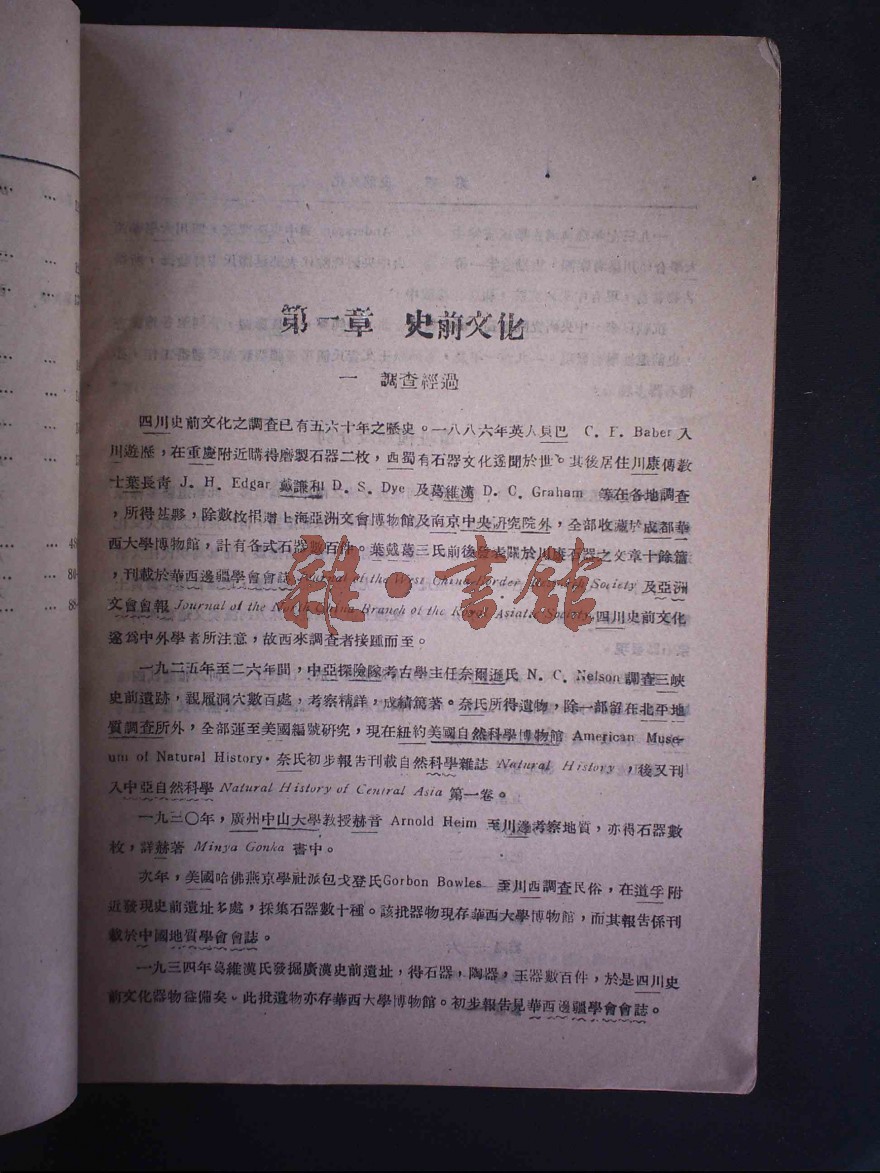 第一章 史前文化
一 調查經過
四川史前文化之調查已有五六十年之歷史。一八八六年英人貝巴 C. F. Baber 入
川遊歷,在重慶附近購得磨製石器二枚,西蜀有石器文化遂聞於世。其後居住川康傳教
士葉長青 J. H. Edgar 戴謙和 D. S. Dye 及葛維漢 D. C. Graham 等在各地調查
,所得甚夥,除數枚捐贈上海亞洲文會博物館及南京中央研究院外,全部收藏於成都華
西大學博物館,計有各式石器數百件。葉戴葛三氏前後發表關於川康石器之文章十餘篇
,刊載於華西邊疆學會會誌 Journal of the West China Border Research Society 及亞洲
文會會報 Journal of the North China Branch of the Royal Asiatic Society, 四川史前文化
遂爲中外學者所注意,故西來調查者接踵而至。
一九二五年至二六年間,中亞探險隊考古學主任奈爾遜氏 N. C. Nelson 調查三峽
史前遺跡,親履洞穴數百處,考察精詳,成績篤著。奈氏所得遺物,除一部留在北平地
質調查所外,全部運至美國編號研究,現在紐約美國自然科學博物館 American Muse-
um of Natural History. 奈氏初步報告刊載自然科學雜誌 Natural History ,後又刊
入中亞自然科學 Natural History of Central Asia 第一卷。
一九三〇年,廣州中山大學教授赫音 Arnold Heim 至川邊考察地質,亦得石器數
枚,詳赫著 Minya Gonka 書中。
次年,美國哈佛燕京學社派包戈登氏 Gorbon Bowles 至川西調查民俗,在道孚附
近發現史前遺址多處,採集石器數十種。該批器物現存華西大學博物館,而其報告係刊
載於中國地質學會會誌。
一九三四年葛維漢氏發掘廣漢史前遺址,得石器,陶器,玉器數百件,於是四川史
前文化器物益備矣。此批遺物亦存華西大學博物館。初步報告見華西邊疆學會會誌。
雜·書館
48
80
88